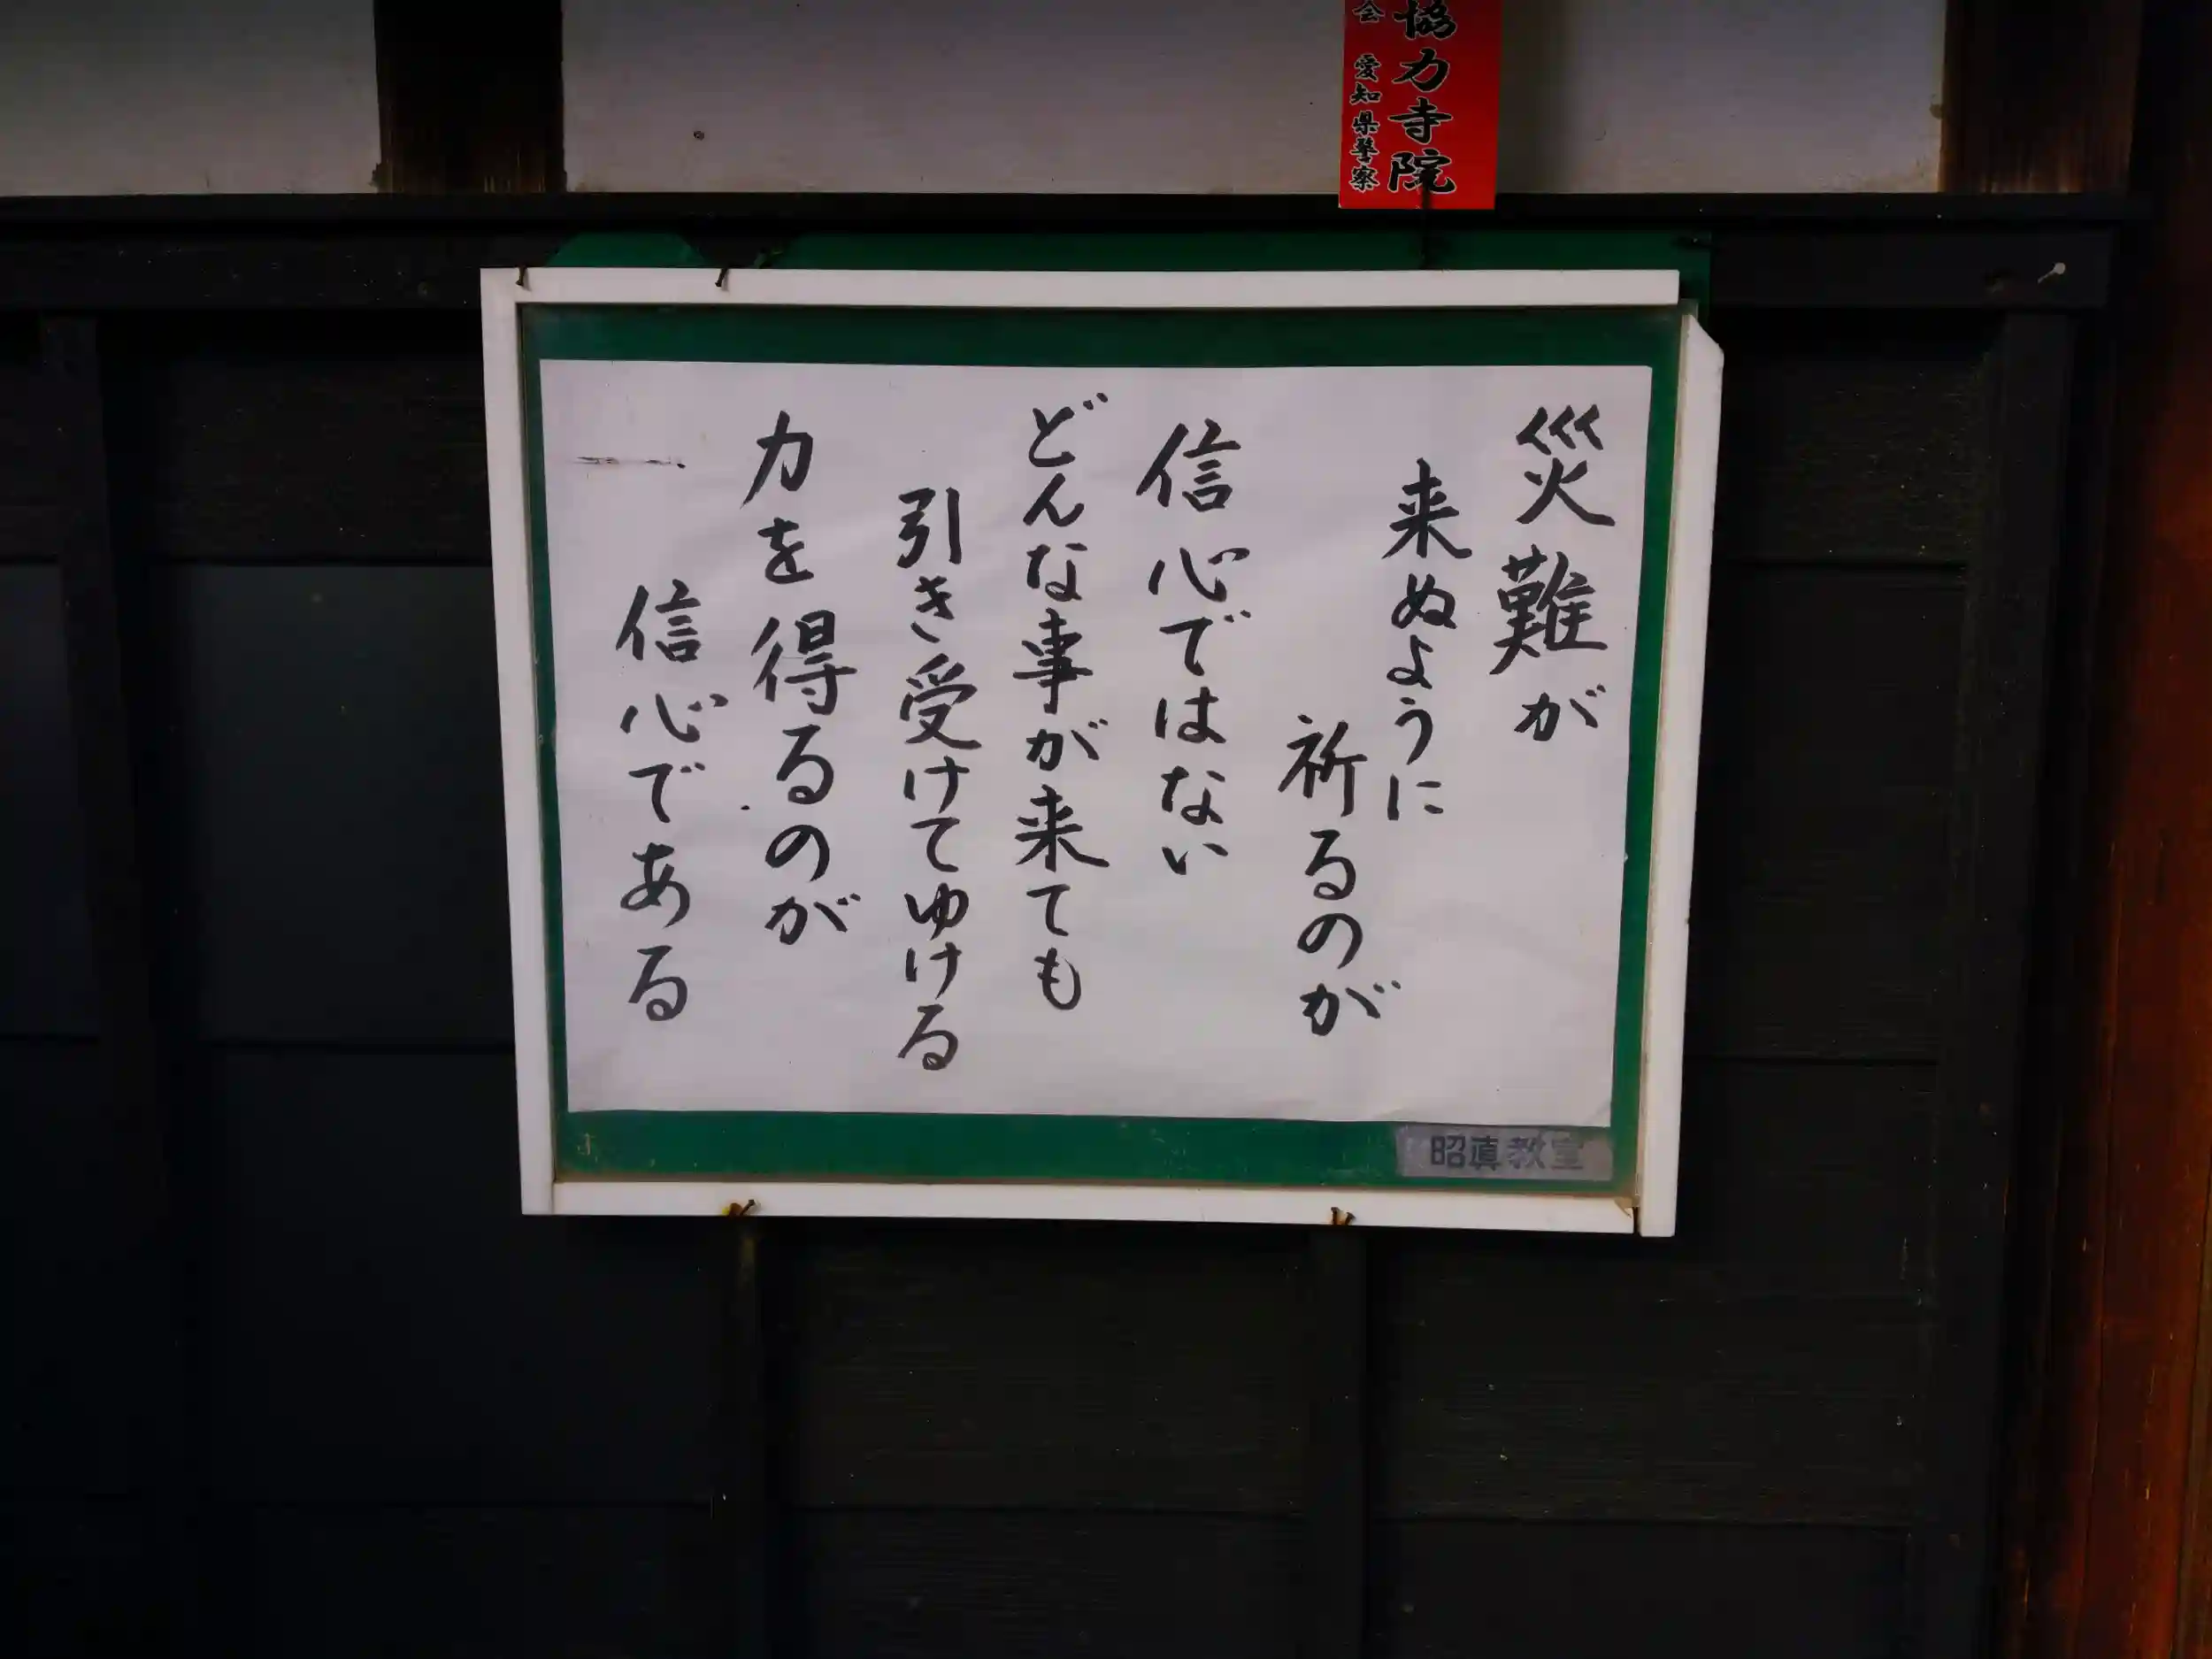 協力寺院
会 愛知県警察
災難が
来ぬように
祈るのが
信心ではない
どんな事が来ても
引き受けてゆける
力を得るのが
信心である
昭真教室